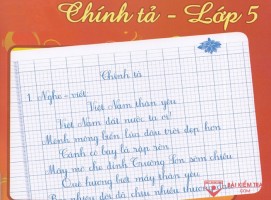 Chính tả - Lớp 5
Chính tả
1. Nghe - viết:
Việt Nam thân yêu
Việt Nam đất nước ta ơi!
Mênh mông biển lúa đâu trời đẹp hơn
Cánh cò bay lả rập rờn
Mây mờ che đỉnh Trường Sơn sớm chiều
Quê hương biết mấy thân yêu
nhiêu đời đã chịu nhiều thương đau
BÀI KIỂM TRA
.COM